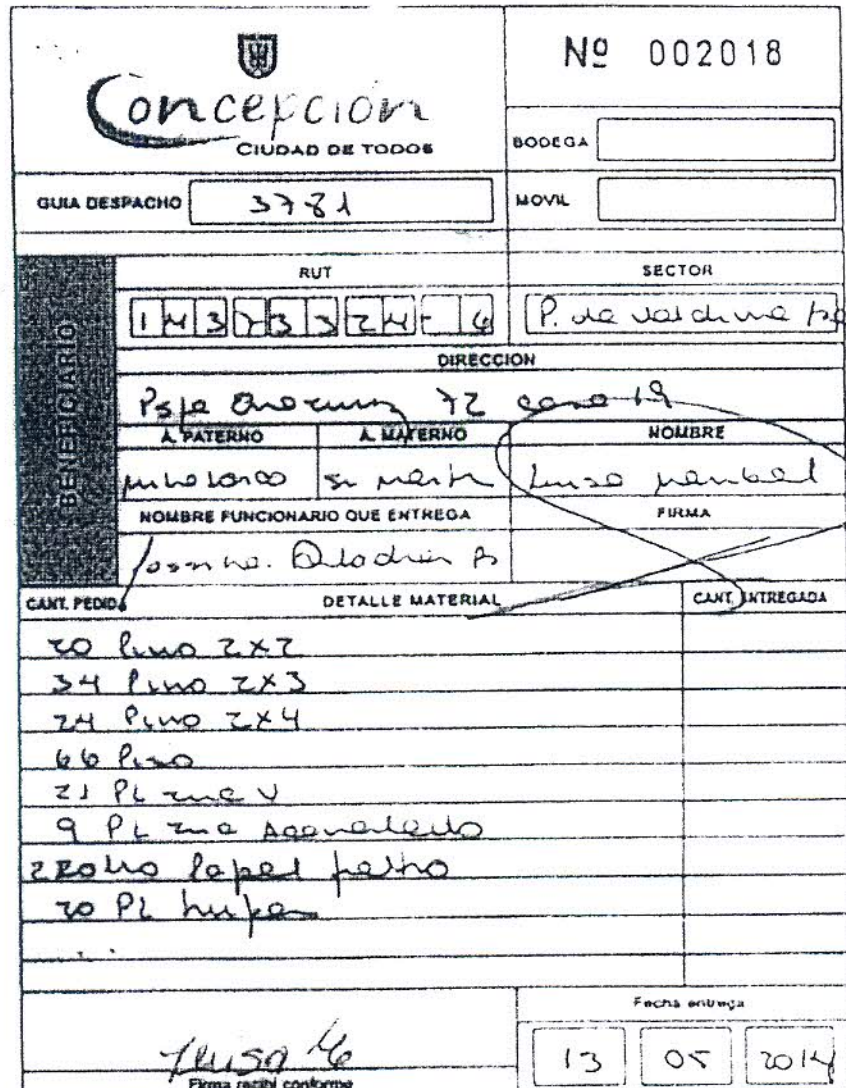 Concepción
CIUDAD DE TODOS
Nº 002018
BODEGA
GUIA DESPACHO 3781
MOVIL
BENEFICIARIO
RUT
SECTOR
14373324-6
P. de Valdivia
DIRECCION
Psje 72 casa 19
A. PATERNO A. MATERNO NOMBRE
Sn Martin Luisa
NOMBRE FUNCIONARIO QUE ENTREGA FIRMA
CANT. PEDIDA DETALLE MATERIAL CANT. ENTREGADA
20 Pino 2x2
34 Pino 2x3
24 Pino 2x4
66 Piso
21 PL zinc V
9 PL zinc Acanalado
2 Rollo Papel fieltro
20 PL
Luisa
Firma recibi conforme
Fecha entrega
13 05 2014